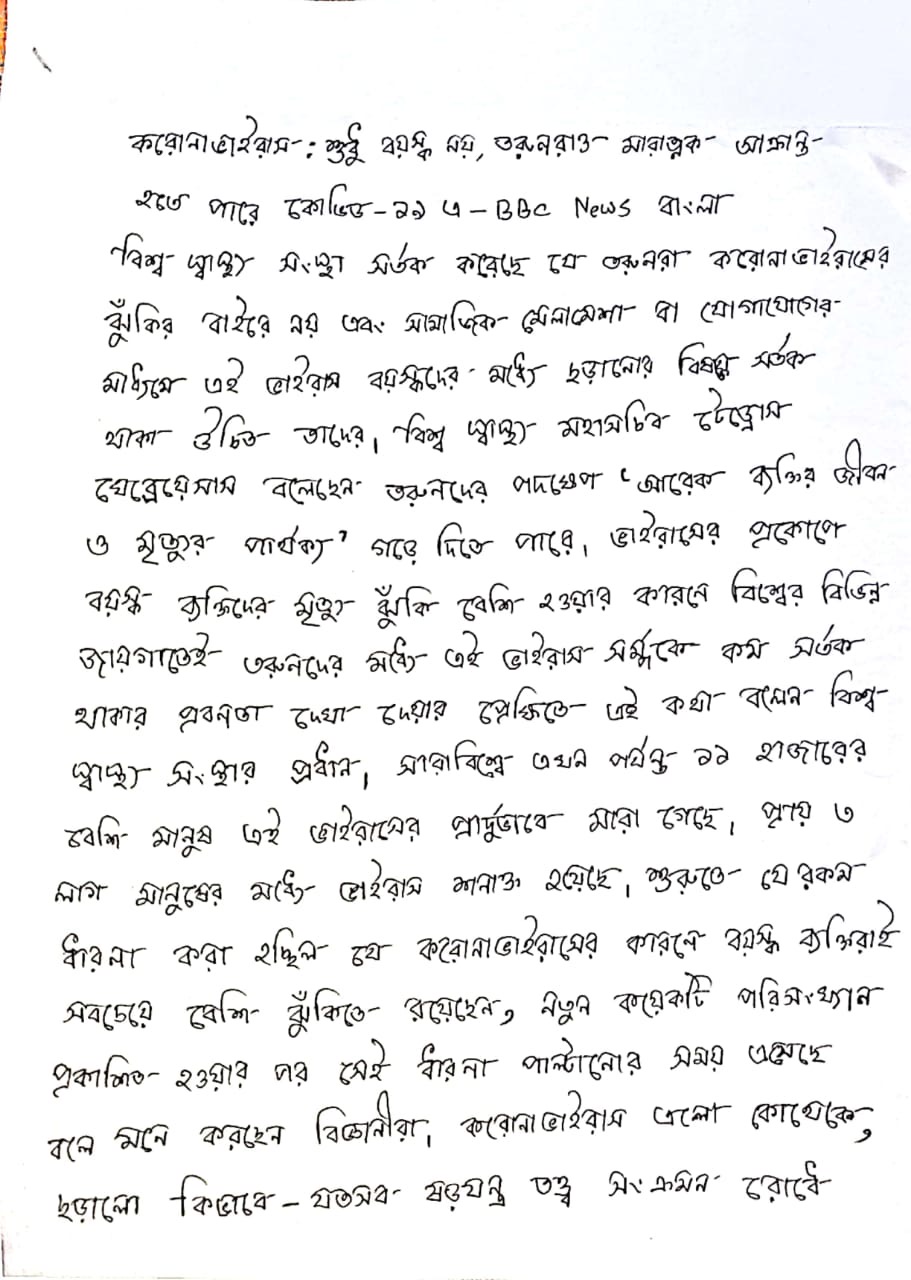 করোনাভাইরাস: শুধু বয়স্ক নয়, তরুনরাও মারাত্নক আক্রান্ত
হতে পারে কোভিড-১৯ এ - BBC News বাংলা
বিশ্ব স্বাস্থ্য সংস্থা সর্তক করেছে যে তরুনরা করোনাভাইরাসের
ঝুঁকির বাইরে নয় এবং সামাজিক মেলামেশা বা যোগাযোগের
মাধ্যমে এই ভাইরাস বয়স্কদের মধ্যে ছড়ানোর বিষয়ে সর্তক
থাকা উচিত তাদের। বিশ্ব স্বাস্থ্য মহাসচিব টেড্রোস
ঘেব্রেয়েসাস বলেছেন তরুনদের পদক্ষেপ 'আরেক ব্যক্তির জীবন
ও মৃত্যুর পার্থক্য' গড়ে দিতে পারে। ভাইরাসের প্রকোপে
বয়স্ক ব্যক্তিদের মৃত্যু ঝুঁকি বেশি হওয়ার কারনে বিশ্বের বিভিন্ন
জায়গাতেই তরুনদের মধ্যে এই ভাইরাস সর্ম্পকে কম সর্তক
থাকার প্রবনতা দেখা দেয়ার প্রেক্ষিতে এই কথা বলেন বিশ্ব
স্বাস্থ্য সংস্থার প্রধান। সারাবিশ্বে এখন পর্যন্ত ১১ হাজারের
বেশি মানুষ এই ভাইরাসের প্রার্দুভাবে মারা গেছে। প্রায় ৩
লাগ মানুষের মধ্যে ভাইরাস শনাক্ত হয়েছে। শুরুতে যেরকম
ধারনা করা হচ্ছিল যে করোনাভাইরাসের কারনে বয়স্ক ব্যক্তিরাই
সবচেয়ে বেশি ঝুঁকিতে রয়েছেন, নতুন কয়েকটি পরিসংখ্যান
প্রকাশিত হওয়ার পর সেই ধারনা পাল্টানোর সময় এসেছে
বলে মনে করছেন বিজ্ঞানীরা। করোনাভাইরাস এলো কোথেকে,
ছড়ালো কিভাবে - যতসব ষড়যন্ত্র তত্ত্ব সংক্রমন রোধে